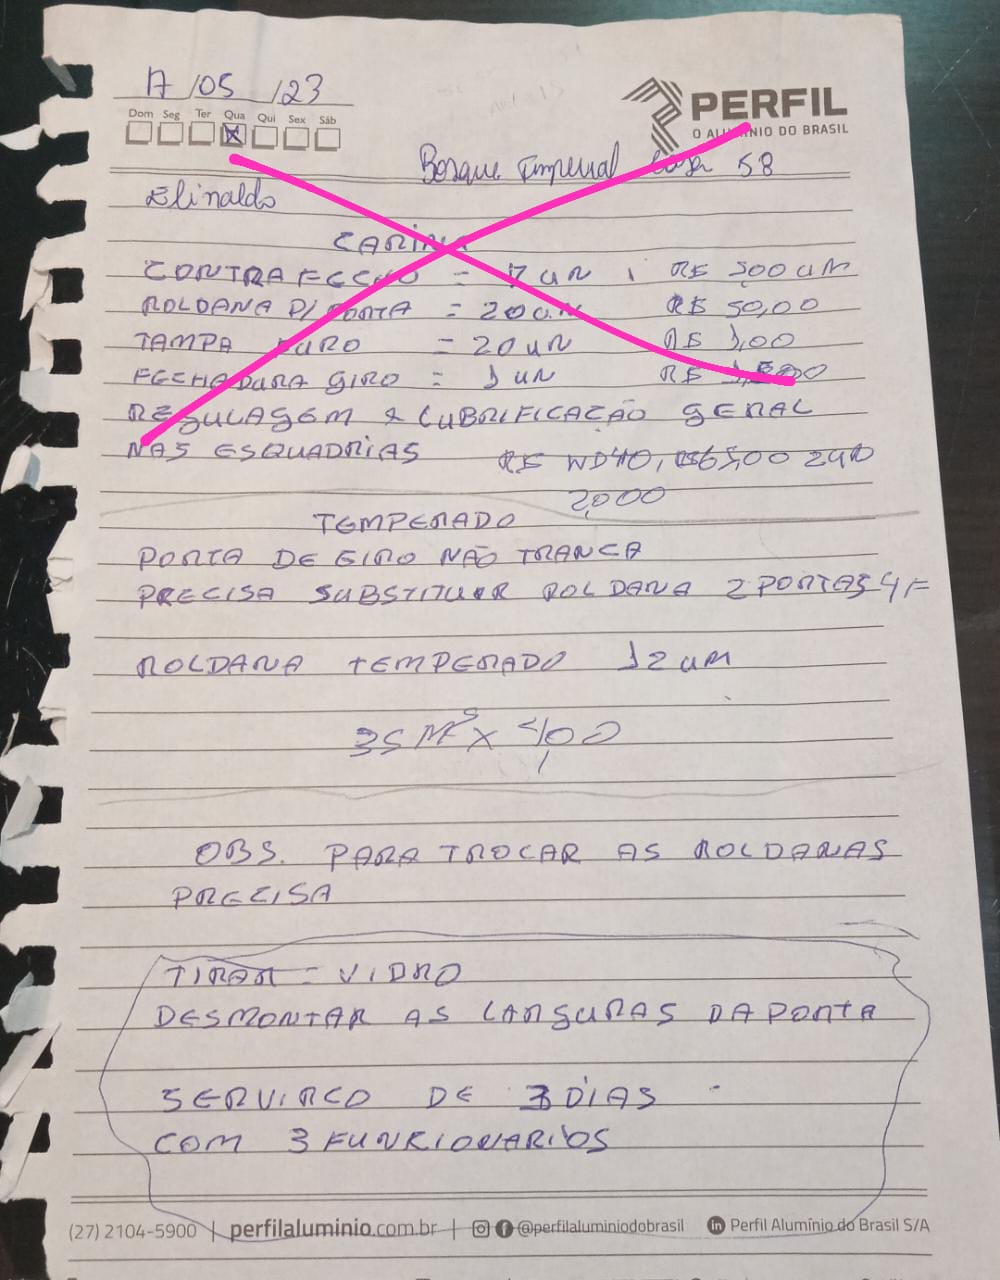 17/05/23
Dom Seg Ter Qua Qui Sex Sáb
PERFIL
O ALUMÍNIO DO BRASIL
Bosque Imperial Casa 58
Elinaldo
CONTRA FECHO = 7 UN R$ 500 UM
ROLDANA P/ PORTA = 20 UN R$ 50,00
TAMPA FURO = 20 UN R$ 1,00
FECHADURA GIRO = 1 UN R$
REGULAGEM & LUBRIFICAÇÃO GERAL
NAS ESQUADRIAS R$ WD40, 65,00 2 UN
2,000
TEMPERADO
PORTA DE GIRO NÃO TRANCA
PRECISA SUBSTITUIR ROLDANA 2 PORTAS 4 F
ROLDANA TEMPERADO 12 UM
35 M² X 400
OBS. PARA TROCAR AS ROLDANAS
PRECISA
TIRAR = VIDRO
DESMONTAR AS LARGURAS DA PORTA
SERVIRCO DE 3 DIAS
COM 3 FUNKIONARIOS
(27) 2104-5900 | perfilaluminio.com.br | @perfilaluminiodobrasil Perfil Alumínio do Brasil S/A